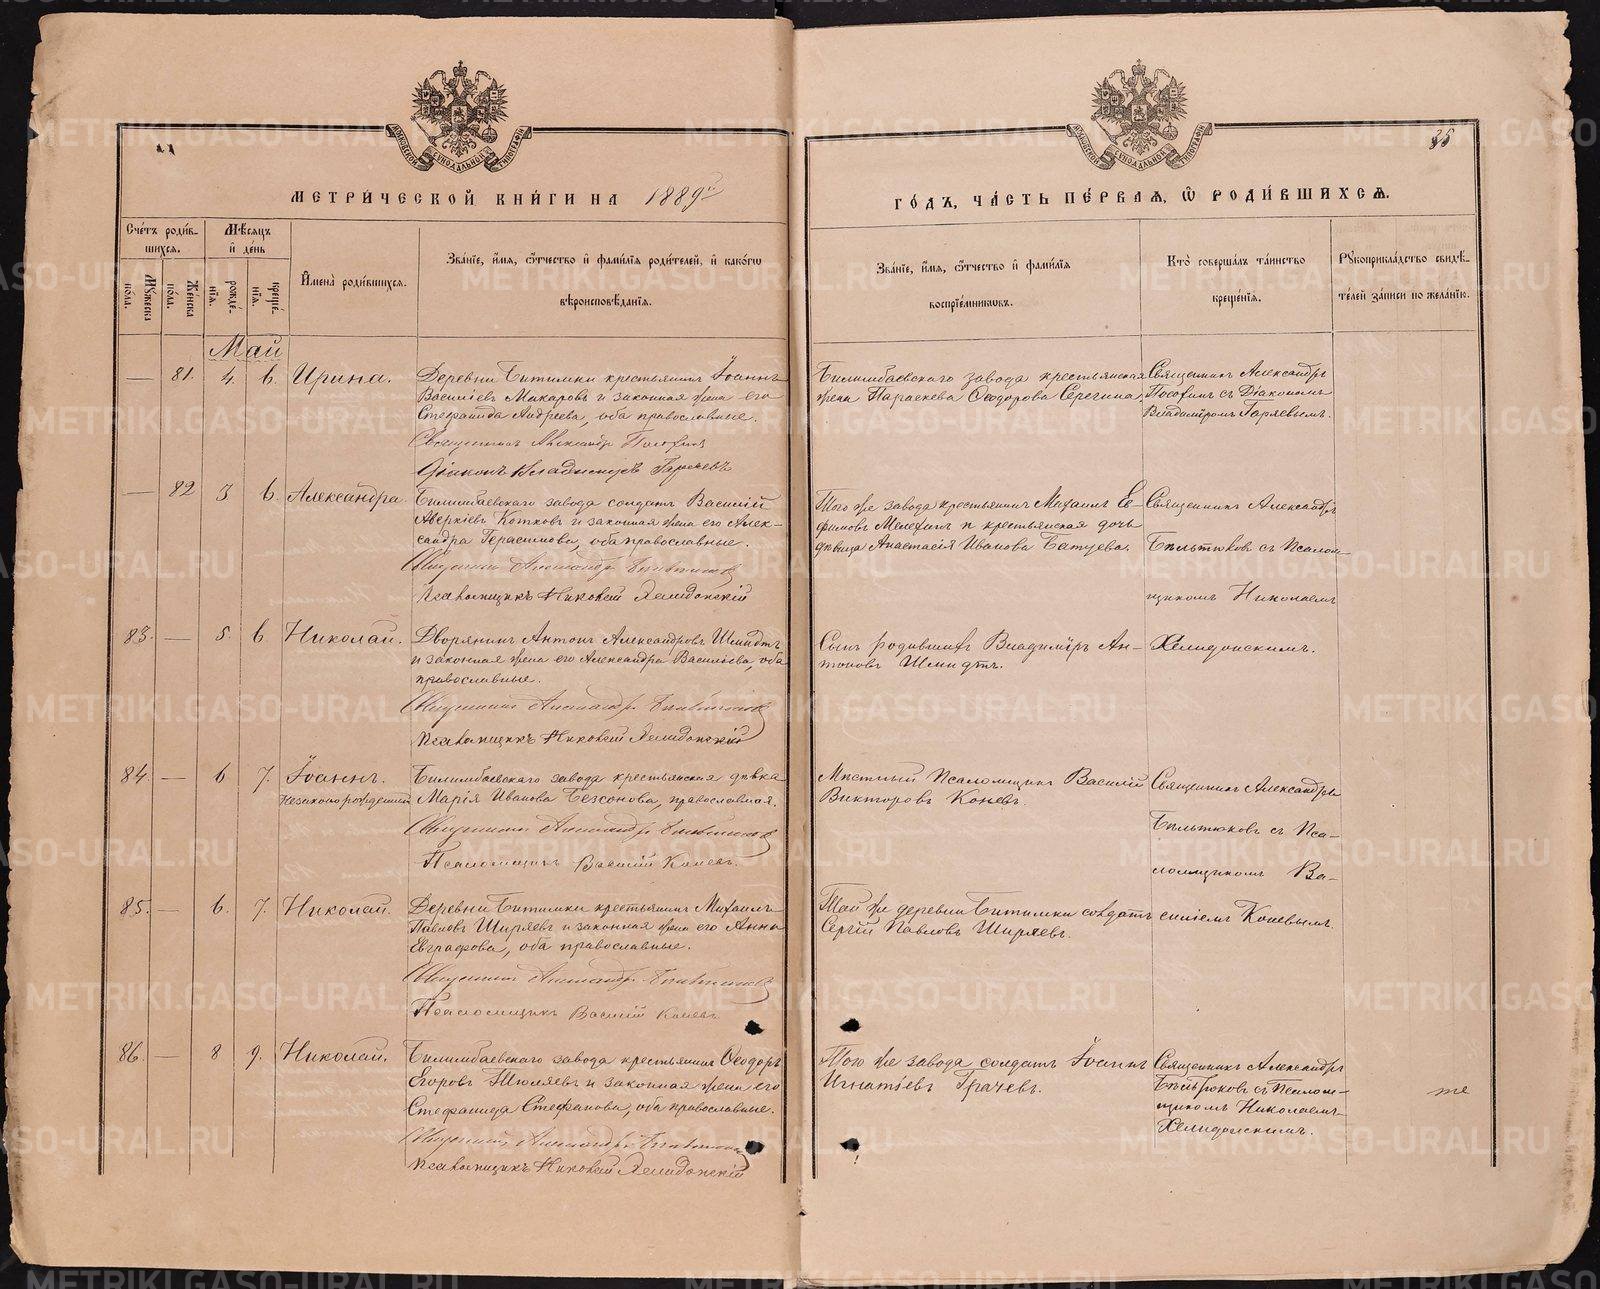 МОСКОВСКОЙ СѴНОДАЛЬНОЙ ТИПОГРАФІИ
МОСКОВСКОЙ СѴНОДАЛЬНОЙ ТИПОГРАФІИ
35
МЕТРИ́ЧЕСКОЙ КНИ́ГИ НА 1889й
ГО́ДЪ, ЧА́СТЬ ПЕ́РВАѦ, Ѡ РОДИ́ВШИХСѦ.
Сче́тъ роди́в-
шихсѧ.
Мѣ́сѧцъ
и҆ де́нь
Мꙋ́жеска
по́ла.
Же́нска
по́ла.
рожде́-
нїѧ.
креще́-
нїѧ.
И҆мена̀ роди́вшихсѧ.
Зва́нїе, и҆́мѧ, ѻ҆́тчество и҆ фами́лїѧ роди́телей, и҆ како́гѡ
вѣроисповѣ́данїѧ.
Зва́нїе, и҆́мѧ, ѻ҆́тчество и҆ фами́лїѧ
воспрїе́мникѡвъ.
Кто̀ соверша́лъ та́инство
креще́нїѧ.
Рꙋкоприкла́дство свидѣ́-
телей за́писи по жела́нїю.
Май
— 81. 4. 6. Ирина.
Деревни Битимки крестьянинъ Іоаннъ
Василіевъ Макаровъ и законная жена его
Стефанида Андреева, оба православные.
Священникъ Александръ
Діаконъ Владимиръ Горяевъ
Билимбаевскаго завода крестьянская
жена Параскева Ѳеодорова Серегина.
Священникъ Александръ
съ Діакономъ
Владиміромъ Горяевымъ.
— 82 3 6. Александра
Билимбаевскаго завода солдатъ Василій
Аверкіевъ Котковъ и законная жена его Алек-
сандра Герасимова, оба православные.
Священникъ Александръ Бѣльтюковъ
Псаломщикъ Николай Хелидонскій
Того же завода крестьянинъ Михаилъ Ев-
фимовъ Мелехинъ и крестьянская дочь
дѣвица Анастасія Иванова Батуева.
Священникъ Александръ
Бѣльтюковъ съ Псалом-
щикомъ Николаемъ
Хелидонскимъ.
83. — 5. 6. Николай.
Дворянинъ Антонъ Александровъ Шмидтъ
и законная жена его Александра Василіева, оба
православные.
Священникъ Александръ Бѣльтюковъ
Псаломщикъ Николай Хелидонскій
Сынъ родившихъ Владиміръ Ан-
тоновъ Шмидтъ.
84 — 6 7. Іоаннъ.
Незаконорожденный
Билимбаевскаго завода крестьянская дѣвка
Марія Иванова Безсонова, православная.
Священникъ Александръ Бѣльтюковъ
Псаломщикъ Василій Коневъ.
Мѣстный Псаломщикъ Василій
Викторовъ Коневъ.
Священникъ Александръ
Бѣльтюковъ съ Пса-
ломщикомъ Ва-
силіемъ Коневымъ.
85. — 6. 7. Николай.
Деревни Битимки крестьянинъ Михаилъ
Павловъ Ширяевъ и законная жена его Анна
Евграфова, оба православные.
Священникъ Александръ Бѣльтюковъ
Псаломщикъ Василій Коневъ
Той же деревни Битимки солдатъ
Сергій Павловъ Ширяевъ.
86. — 8 9. Николай.
Билимбаевскаго завода крестьянинъ Ѳеодоръ
Егоровъ Шюляевъ и законная жена его
Стефанида Стефанова, оба православные.
Священникъ Александръ Бѣльтюковъ
Псаломщикъ Николай Хелидонскій
Того же завода солдатъ Іоаннъ
Игнатіевъ Грачевъ.
Священникъ Александръ
Бѣльтюковъ съ Псалом-
щикомъ Николаемъ
Хелидонскимъ.
METRIKI.GASO-URAL.RU